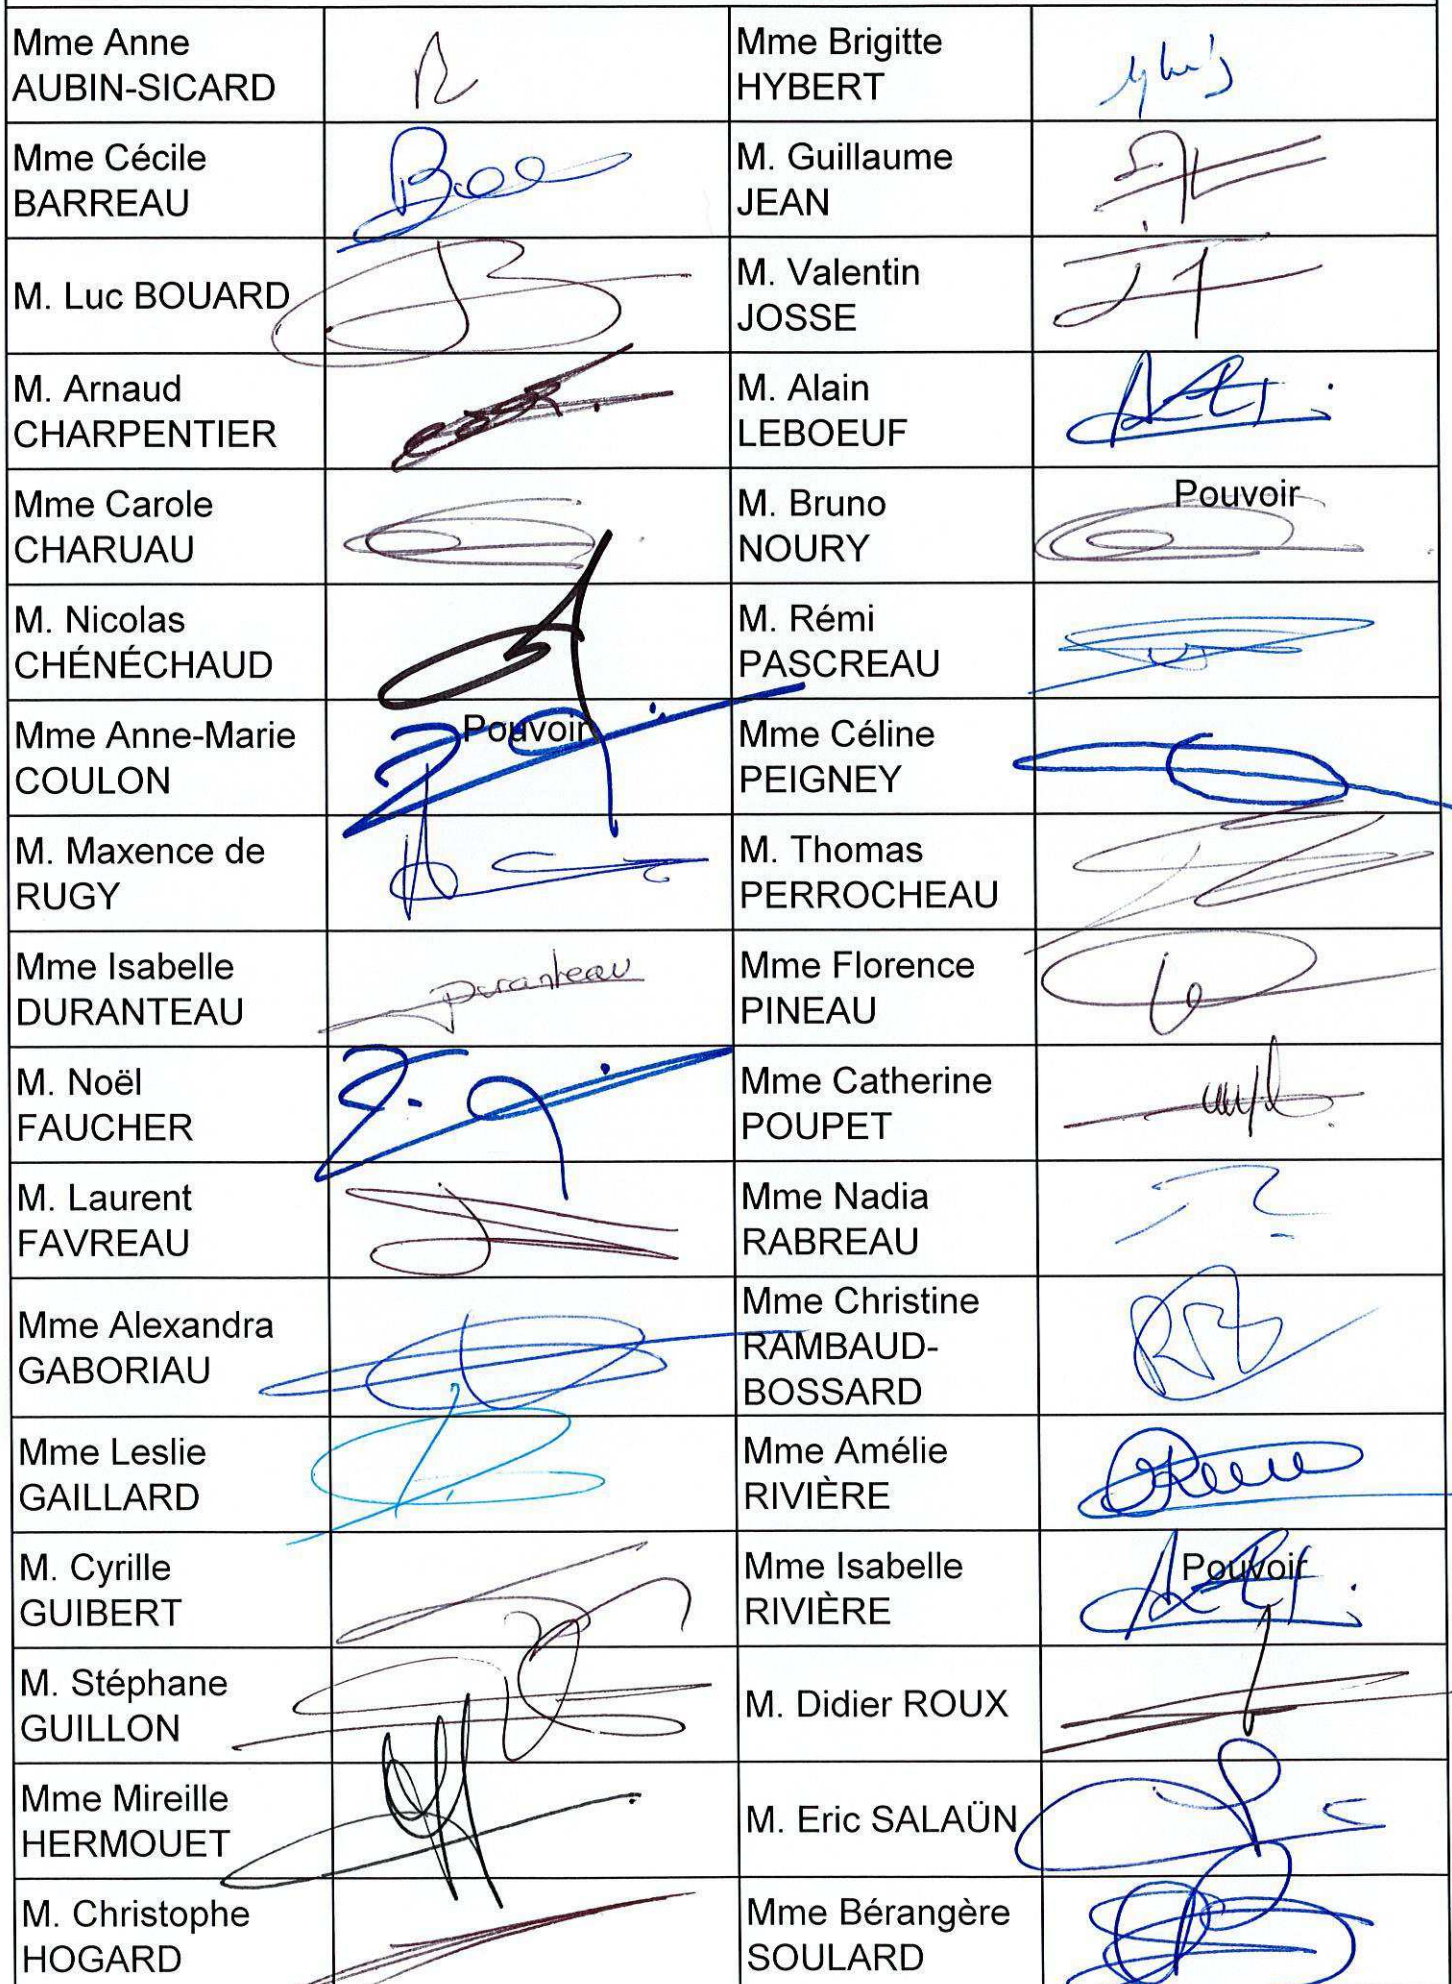 Mme Anne
AUBIN-SICARD
Mme Brigitte
HYBERT
Mme Cécile
BARREAU
M. Guillaume
JEAN
M. Luc BOUARD
M. Valentin
JOSSE
M. Arnaud
CHARPENTIER
M. Alain
LEBOEUF
Mme Carole
CHARUAU
M. Bruno
NOURY
Pouvoir
M. Nicolas
CHÉNÉCHAUD
M. Rémi
PASCREAU
Mme Anne-Marie
COULON
Pouvoir
Mme Céline
PEIGNEY
M. Maxence de
RUGY
M. Thomas
PERROCHEAU
Mme Isabelle
DURANTEAU
Duranteau
Mme Florence
PINEAU
M. Noël
FAUCHER
Mme Catherine
POUPET
M. Laurent
FAVREAU
Mme Nadia
RABREAU
Mme Alexandra
GABORIAU
Mme Christine
RAMBAUD-
BOSSARD
Mme Leslie
GAILLARD
Mme Amélie
RIVIÈRE
M. Cyrille
GUIBERT
Mme Isabelle
RIVIÈRE
Pouvoir
M. Stéphane
GUILLON
M. Didier ROUX
Mme Mireille
HERMOUET
M. Eric SALAÜN
M. Christophe
HOGARD
Mme Bérangère
SOULARD